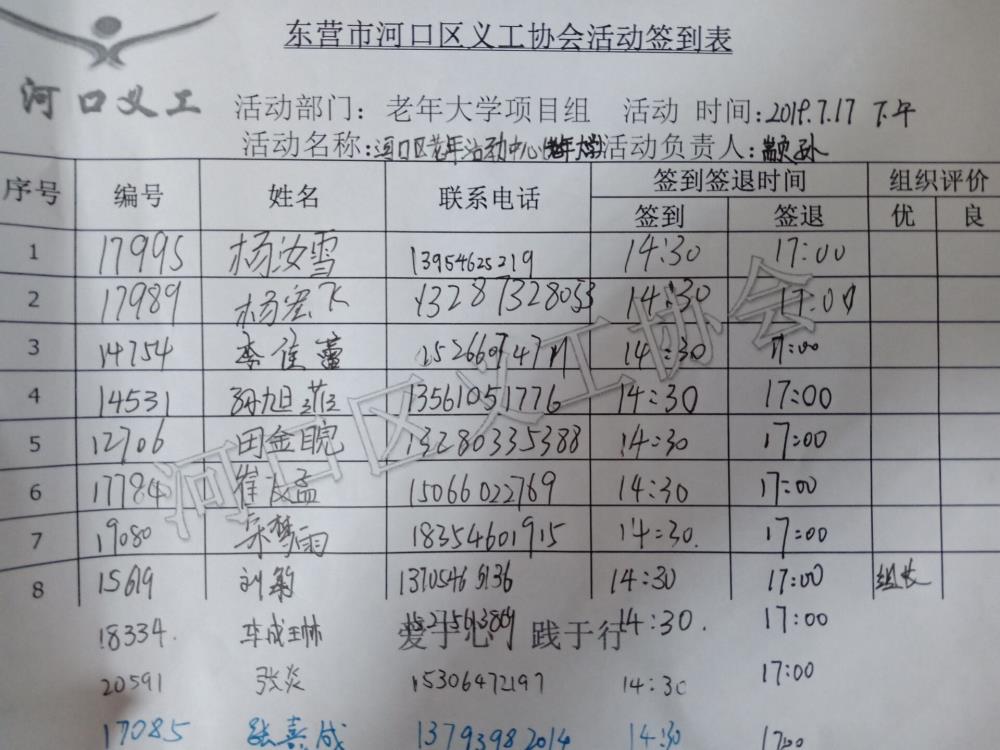 东营市河口区义工协会活动签到表
河口义工
活动部门：老年大学项目组 活动 时间：2019.7.17 下午
活动名称：河口区老年活动中心(老年大学) 活动负责人：
序号 编号 姓名 联系电话 签到签退时间 组织评价
签到 签退 优 良
1 17995 杨汝雪 13954625219 14:30 17:00
2 17989 杨宏飞 13287328053 14:30 17:00
3 14754 李佳蕾 14:30 17:00
4 14531 孙旭菲 13561051776 14:30 17:00
5 12706 田金晛 13280335388 14:30 17:00
6 17784 崔友孟 15066022769 14:30 17:00
7 19080 宋梦雨 18354601915 14:30. 17:00
8 15619 刘敏 13705465136 14:30 17:00 组长
18334. 车成琳 14:30. 17:00
爱于心 践于行
20591 张炎 15306472197 14:30 17:00
17085 张熹成 13793982014 14:30 17:00
河口区义工协会